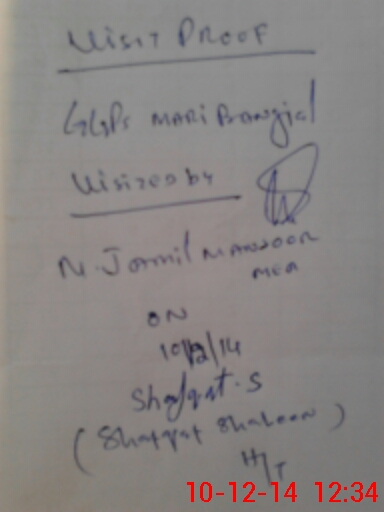 Visit Proof
GGPS Mari Bangial
Visited by
M. Jamil Manzoor
MEA
ON
10/12/14
Shafqat.S
(Shafqat Shaheen)
H/T
10-12-14 12:34